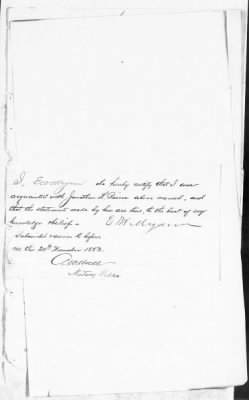 I, do hereby certify that I am
acquainted with Jonathan F. Pierce above named, and
that the statements made by him are true, to the best of my
knowledge & belief.
Subscribed & sworn to before
me this 20th November 1883.
Notary Public